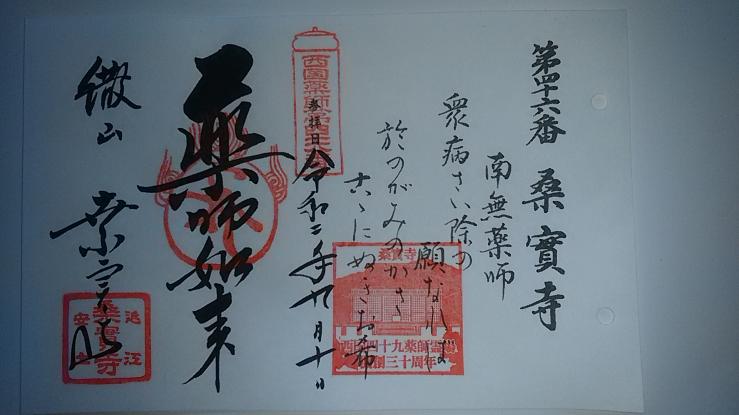 第四十六番 桑實寺
南無薬師
衆病さい除の
願なれば
於のがみのかさ
こゝにぬぎお希
西国薬師第四十六番
奉拝日 令和二年九月十日
薬師如来
繖山 桑實寺
桑實寺
西国四十九薬師霊場
開創三十周年
近江
桑實寺
安土